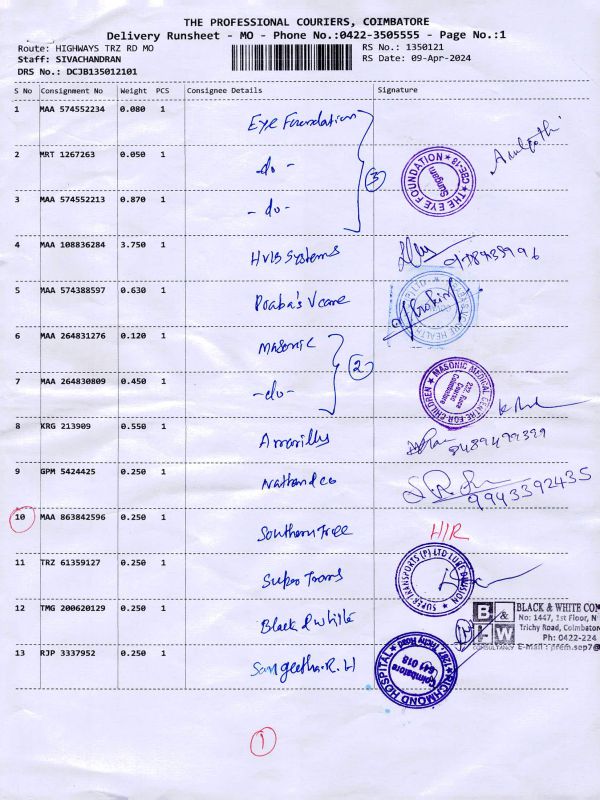 THE PROFESSIONAL COURIERS, COIMBATORE
Delivery Runsheet - MO - Phone No.:0422-3505555 - Page No.:1
Route: HIGHWAYS TRZ RD MO
RS No.: 1350121
Staff: SIVACHANDRAN
RS Date: 09-Apr-2024
DRS No.: DCJB135012101
S No Consignment No Weight PCS Consignee Details Signature
1 MAA 574552234 0.080 1 Eye Foundation
2 MRT 1267263 0.050 1 -do-
3 MAA 574552213 0.870 1 -do-
3
THE EYE FOUNDATION CBE-18
Sungam
4 MAA 108836284 3.750 1 HVB Systems
5 MAA 574388597 0.630 1 Praba's Vcare
6 MAA 264831276 0.120 1 Masonic
7 MAA 264830809 0.450 1 -do-
2
MASONIC MEDICAL CENTRE FOR CHILDREN
232, Race Course Coimbatore
8 KRG 213909 0.550 1 Amarilly
9489499399
9 GPM 5424425 0.250 1 Nathan & co
9943392435
10 MAA 863842596 0.250 1 Southern Tree H/R
11 TRZ 61359127 0.250 1 Super Trans
SUPER TRANSPORTS (P) LTD LUBE DIVISION
12 TMG 200620129 0.250 1 Black & white
B & W
CONSULTANCY
BLACK & WHITE CON
No: 1447, 1st Floor, N
Trichy Road, Coimbator
Ph: 0422-224
E-mail : prem.sep7@
13 RJP 3337952 0.250 1 Sangeetha.R.H
RICHMOND HOSPITAL
1287, Trichy Road
Coimbatore
641 018
1